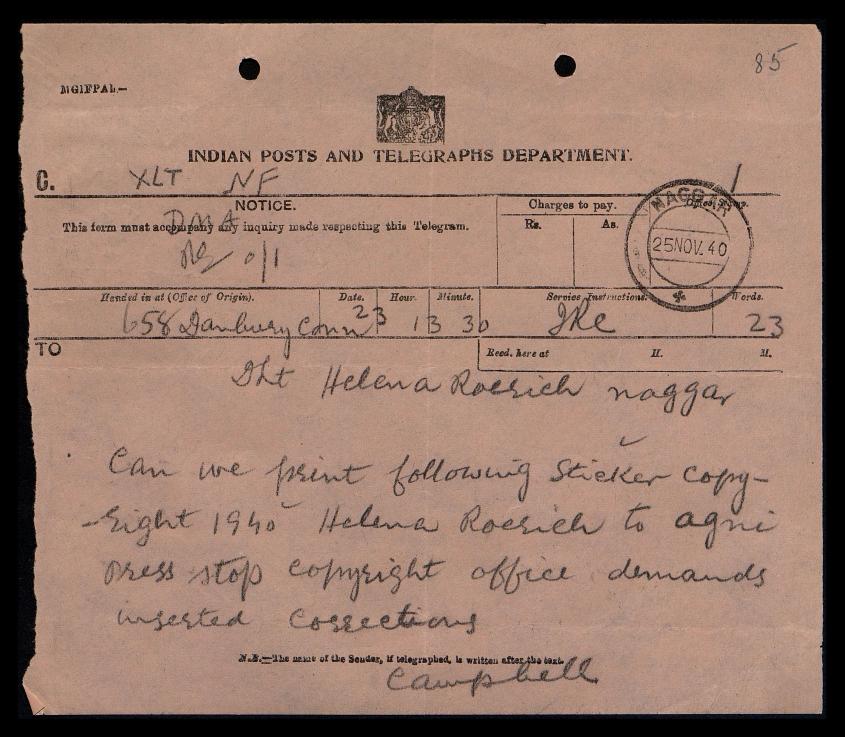 85
MGIFPAL—
INDIAN POSTS AND TELEGRAPHS DEPARTMENT.
C. XLT NF 1
NOTICE.
This form must accompany any inquiry made respecting this Telegram.
Charges to pay.
Rs. As.
Office Stamp.
NAGGAR
25 NOV. 40
Handed in at (Office of Origin). Date. Hour. Minute. Service Instructions. Words.
658 Danbury Conn 23 13 30 IRC 23
TO
Recd. here at H. M.
Dlt Helena Roerich naggar
Can we print following Sticker Copy-
-right 1940 Helena Roerich to agni
press stop copyright office demands
inserted corrections
N.B.—The name of the Sender, if telegraphed, is written after the text.
Campbell